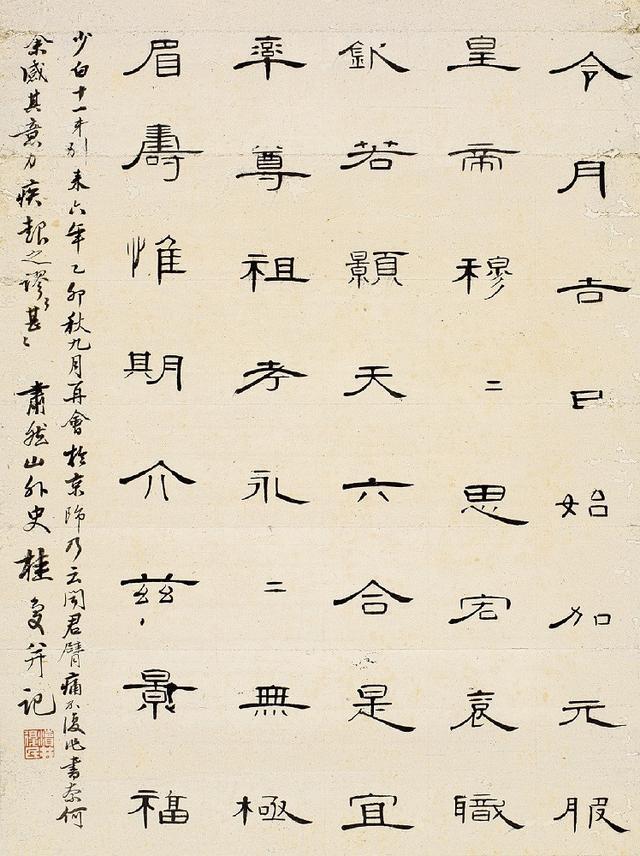 令月吉日始加元服
皇帝穆二思宏袞職
欽若顥天六合是宜
率尊祖考永二無極
眉壽惟期介茲景福
少白十一年別來六年乙卯秋九月再會於京師乃云聞君臂痛不復作書奈何
余感其意力疾報之謬〻甚〻 肅然山外史桂馥并記